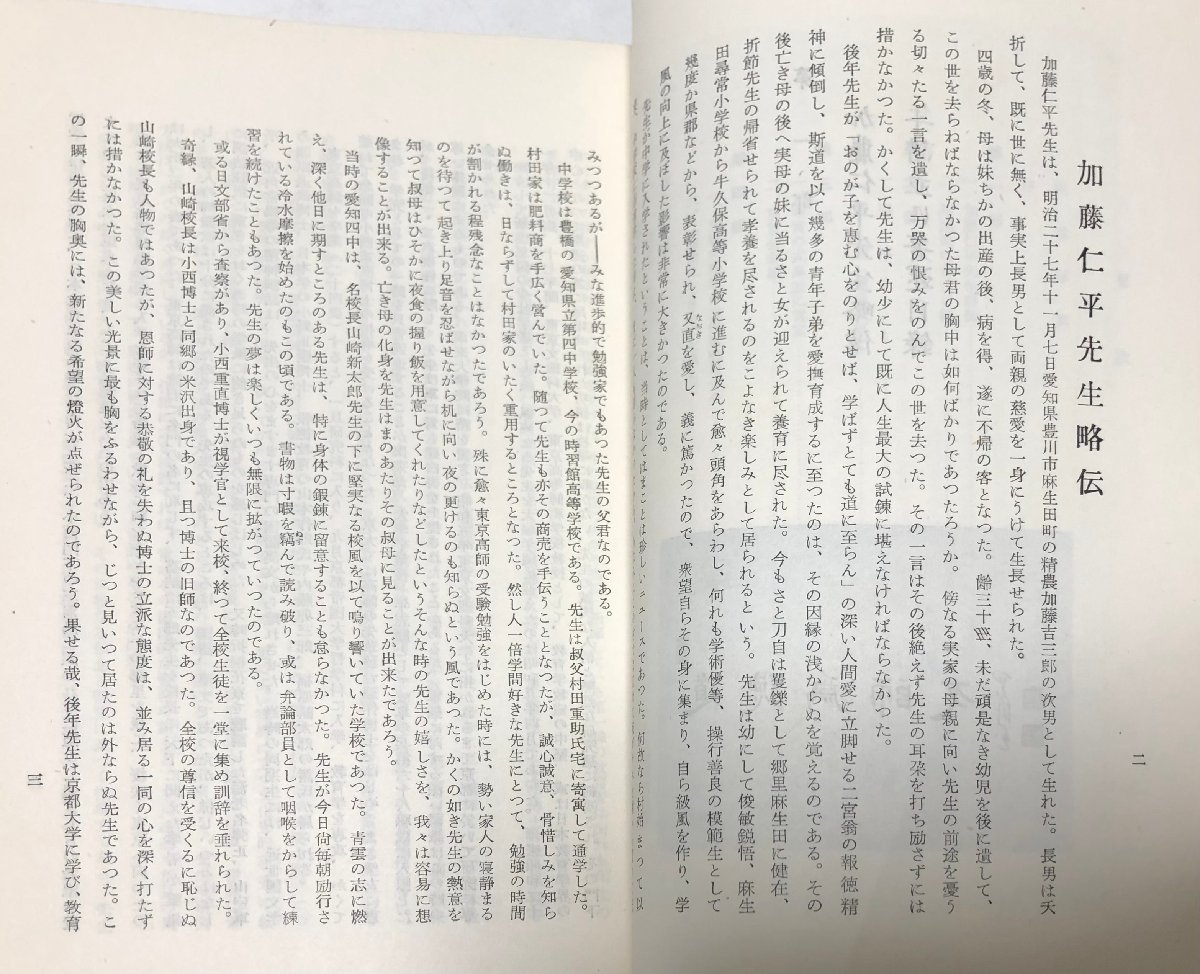 二
加藤仁平先生略伝
加藤仁平先生は、明治二十七年十一月七日愛知県豊川市麻生田町の精農加藤吉三郎の次男として生れた。長男は夭
折して、既に世に無く、事実上長男として両親の慈愛を一身にうけて生長せられた。
四歳の冬、母は妹ちかの出産の後、病を得、遂に不帰の客となつた。齢三十三、未だ頑是なき幼児を後に遺して、
この世を去らねばならなかつた母君の胸中は如何ばかりであつたろうか。傍なる実家の母親に向い先生の前途を憂う
る切々たる一言を遺し、万哭の恨みをのんでこの世を去つた。その一言はその後絶えず先生の耳朶を打ち励さずには
措かなかつた。かくして先生は、幼少にして既に人生最大の試錬に堪えなければならなかつた。
後年先生が「おのが子を恵む心をのりとせば、学ばずとても道に至らん」の深い人間愛に立脚せる二宮翁の報徳精
神に傾倒し、斯道を以て幾多の青年子弟を愛撫育成するに至つたのは、その因縁の浅からぬを覚えるのである。その
後亡き母の後へ実母の妹に当るさと女が迎えられて養育に尽された。今もさと刀自は矍鑠として郷里麻生田に健在、
折節先生の帰省せられて孝養を尽されるのをこよなき楽しみとして居られるという。先生は幼にして俊敏鋭悟、麻生
田尋常小学校から牛久保高等小学校に進むに及んで愈々頭角をあらわし、何れも学術優等、操行善良の模範生として
幾度か県郡などから、表彰せられ、又直を愛し、義に篤かつたので、衆望自らその身に集まり、自ら級風を作り、学
風の向上に及ぼした影響は非常に大きかつたのである。
先生が中学に入学されたということは、当時としてはまことに珍しいニュースであつた。何故なら村始まつて以
みつつあるが――みな進歩的で勉強家でもあつた先生の父君なのである。
中学校は豊橋の愛知県立第四中学校、今の時習館高等学校である。先生は叔父村田重助氏宅に寄寓して通学した。
村田家は肥料商を手広く営んでいた。随つて先生も亦その商売を手伝うこととなつたが、誠心誠意、骨惜しみを知ら
ぬ働きは、日ならずして村田家のいたく重用するところとなつた。然し人一倍学問好きな先生にとつて、勉強の時間
が割かれる程残念なことはなかつたであろう。殊に愈々東京高師の受験勉強をはじめた時には、勢い家人の寝静まる
のを待つて起き上り足音を忍ばせながら机に向い夜の更けるのも知らぬという風であつた。かくの如き先生の熱意を
知つて叔母はひそかに夜食の握り飯を用意してくれたりなどしたというそんな時の先生の嬉しさを、我々は容易に想
像することが出来る。亡き母の化身を先生はまのあたりその叔母に見ることが出来たであろう。
当時の愛知四中は、名校長山崎新太郎先生の下に堅実なる校風を以て鳴り響いていた学校であつた。青雲の志に燃
え、深く他日に期すところのある先生は、特に身体の鍛錬に留意することも怠らなかつた。先生が今日尚毎朝励行さ
れている冷水摩擦を始めたのもこの頃である。書物は寸暇を窃んで読み破り、或は弁論部員として咽喉をからして練
習を続けたこともあつた。先生の夢は楽しくいつも無限に拡がつていつたのである。
或る日文部省から査察があり、小西重直博士が視学官として来校、終つて全校生徒を一堂に集め訓辞を垂れられた。
奇縁、山崎校長は小西博士と同郷の米沢出身であり、且つ博士の旧師なのであつた。全校の尊信を受くるに恥じぬ
山崎校長も人物ではあつたが、恩師に対する恭敬の礼を失わぬ博士の立派な態度は、並み居る一同の心を深く打たず
には措かなかつた。この美しい光景に最も胸をふるわせながら、じつと見いつて居たのは外ならぬ先生であつた。こ
の一瞬、先生の胸奥には、新たなる希望の燈火が点ぜられたのであろう。果せる哉、後年先生は京都大学に学び、教育
三